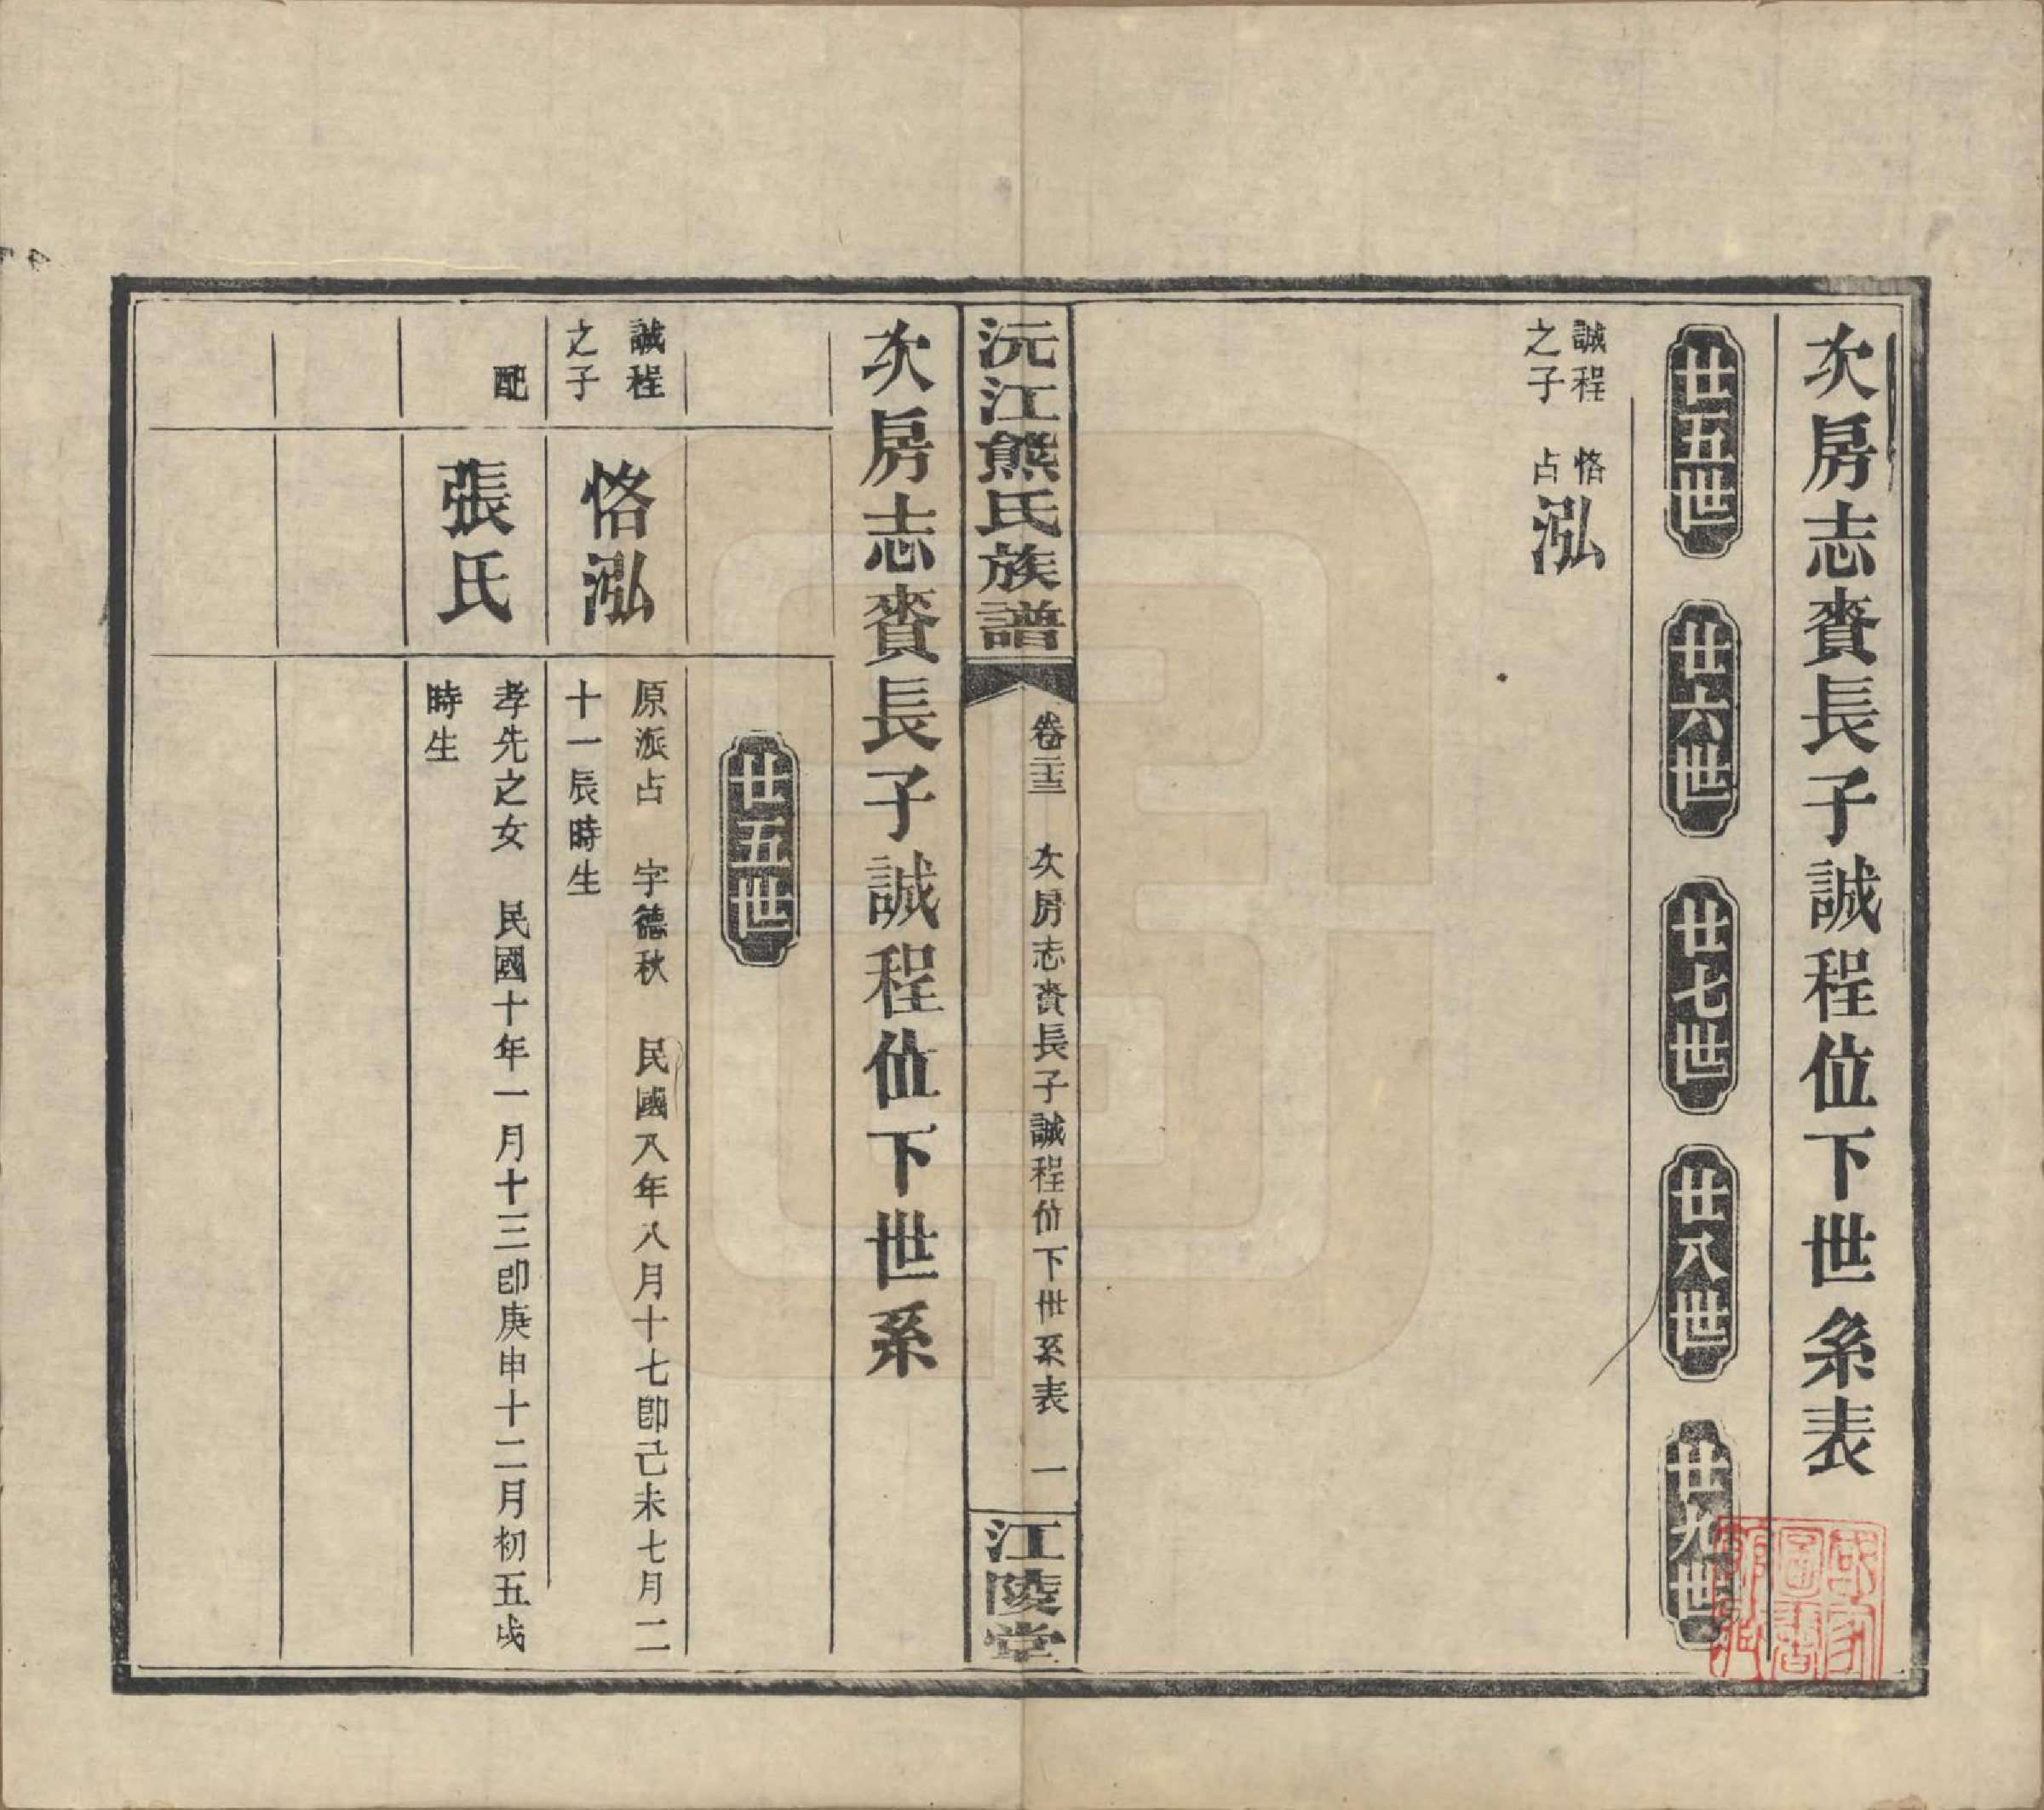 次房志賚長子誠程位下世系表
廿五世
廿六世
廿七世
廿八世
廿九世
誠程
之子
恪
占
泓
沅江熊氏族譜
卷二十三
次房志賚長子誠程位下世系表
一
江陵堂
次房志賚長子誠程位下世系
廿五世
誠程
之子
恪泓
原派占 字德秋 民國八年八月十七卽己未七月二
十一辰時生
配
張氏
孝先之女 民國十年一月十三卽庚申十二月初五戌
時生
國家圖書館藏